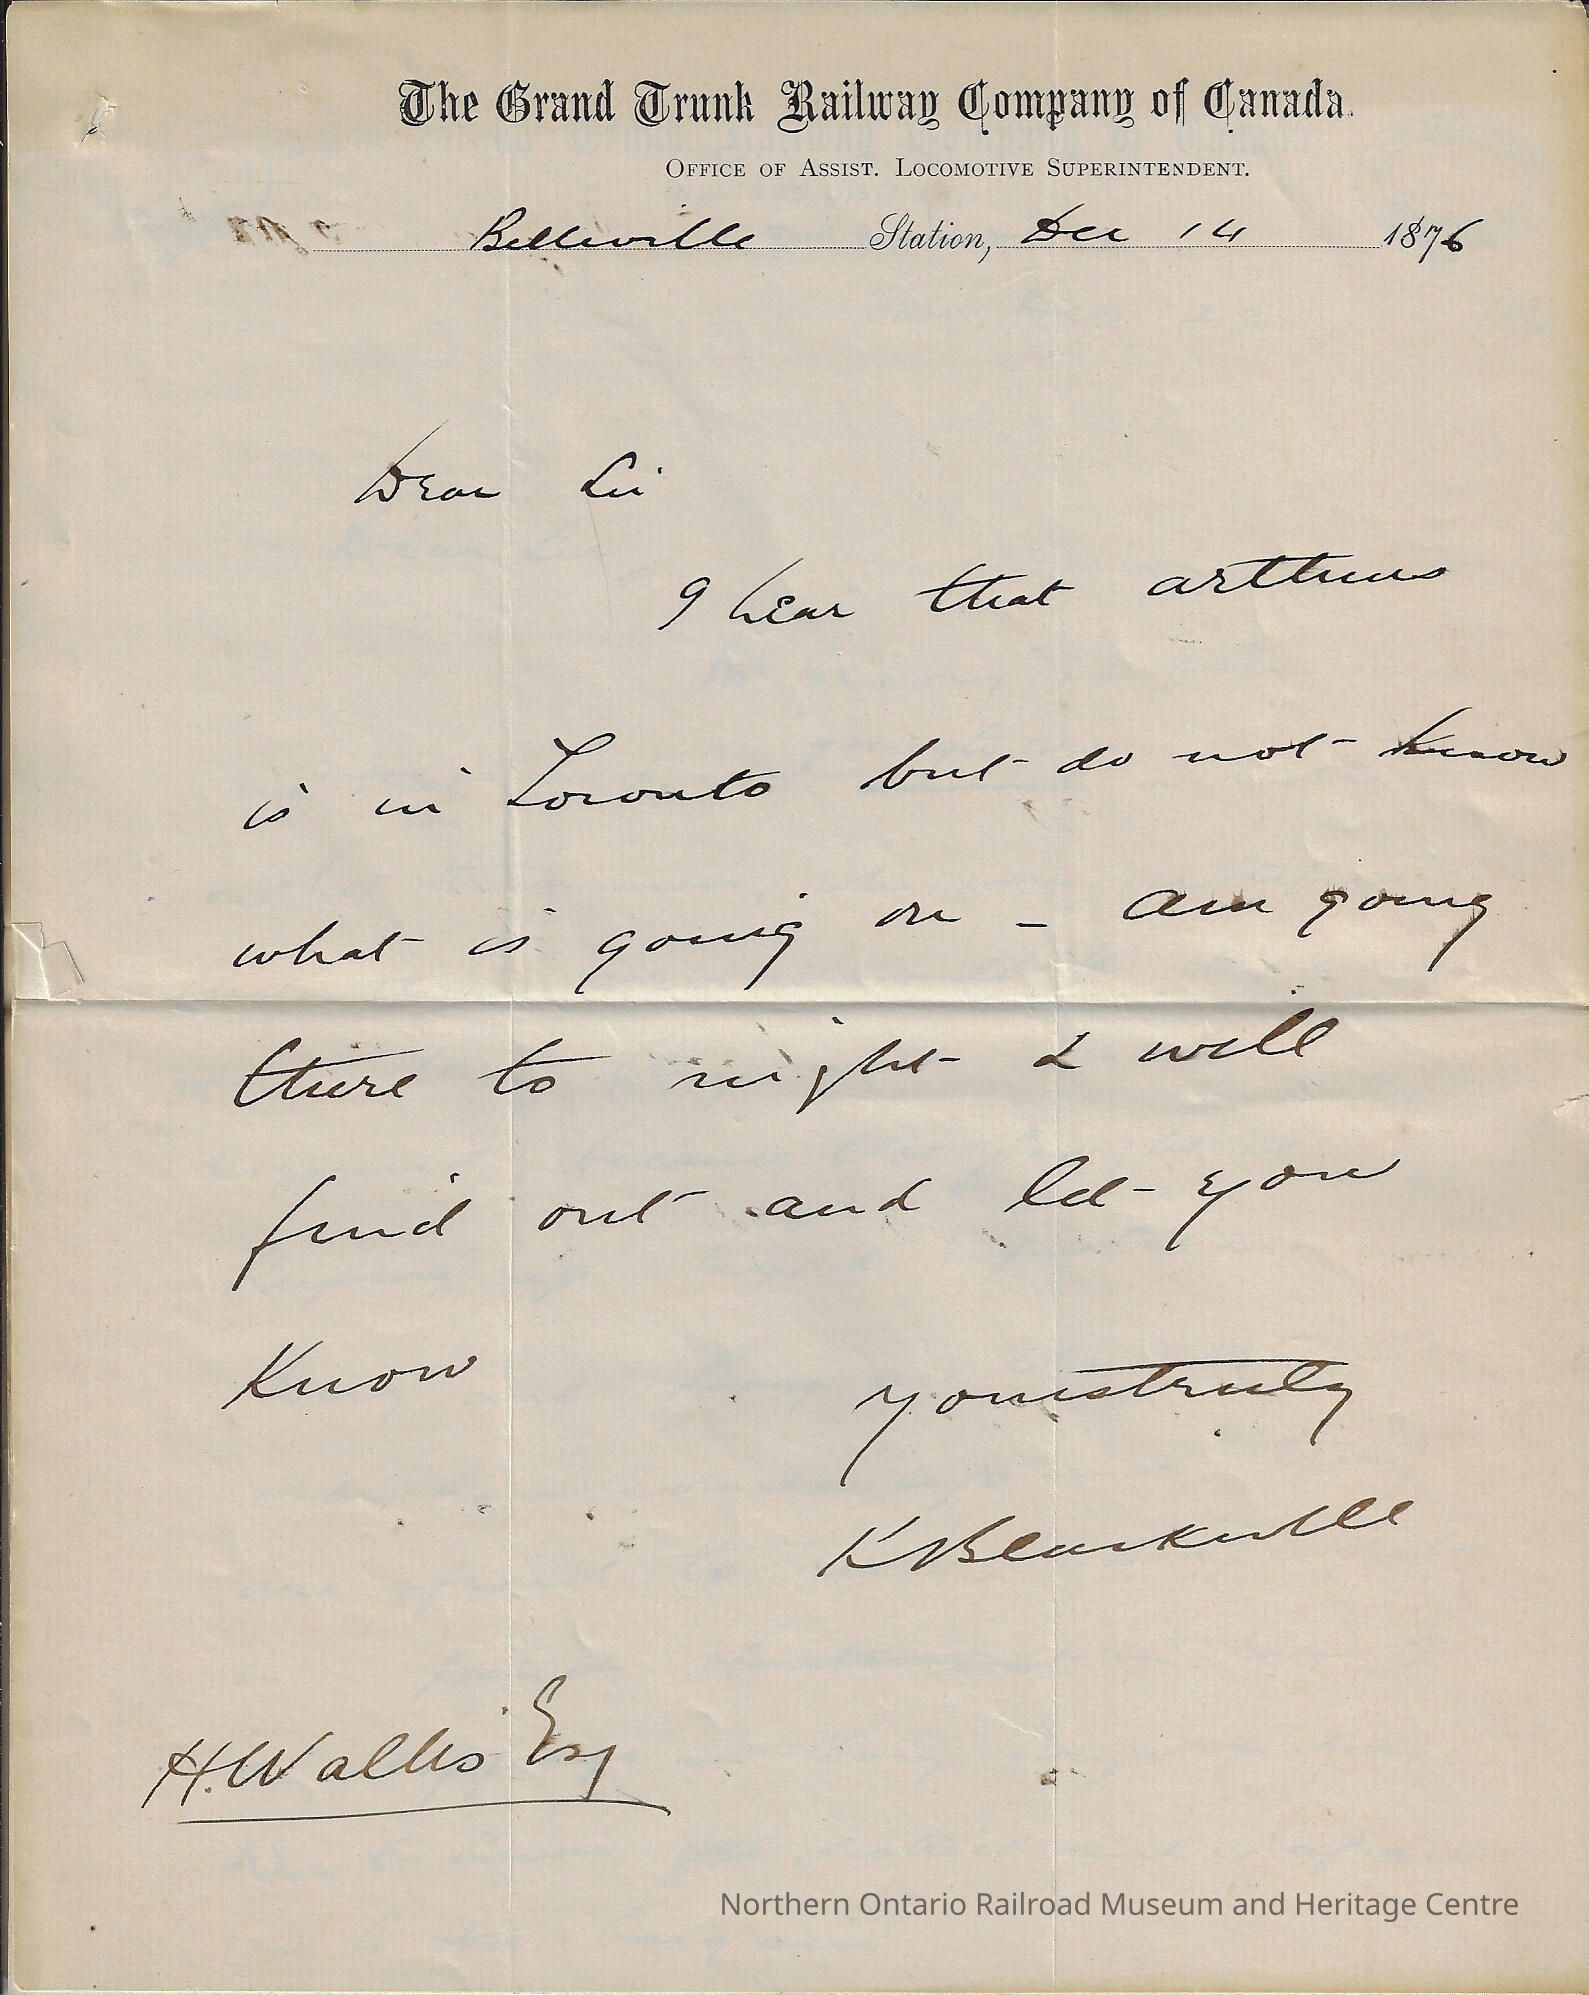 The Grand Trunk Railway Company of Canada.
OFFICE OF ASSIST. LOCOMOTIVE SUPERINTENDENT.
Belleville Station, Dec 14 1876
Dear Sir
I hear that
is in Toronto but do not know
what is going on - am going
there to night & will
find out and let you
Know
yours truly
K Blackwell
H. Wallis Esq
Northern Ontario Railroad Museum and Heritage Centre